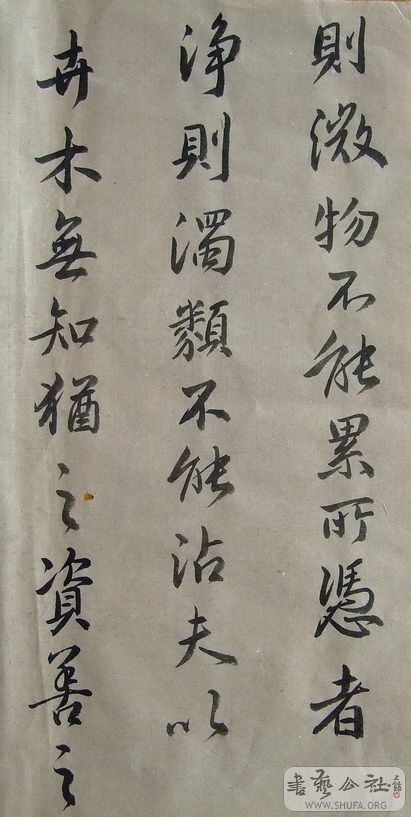 則微物不能累所憑者
浄則濁類不能沾夫以
卉木無知猶之資善之
書藝公社
WWW.SHUFA.ORG